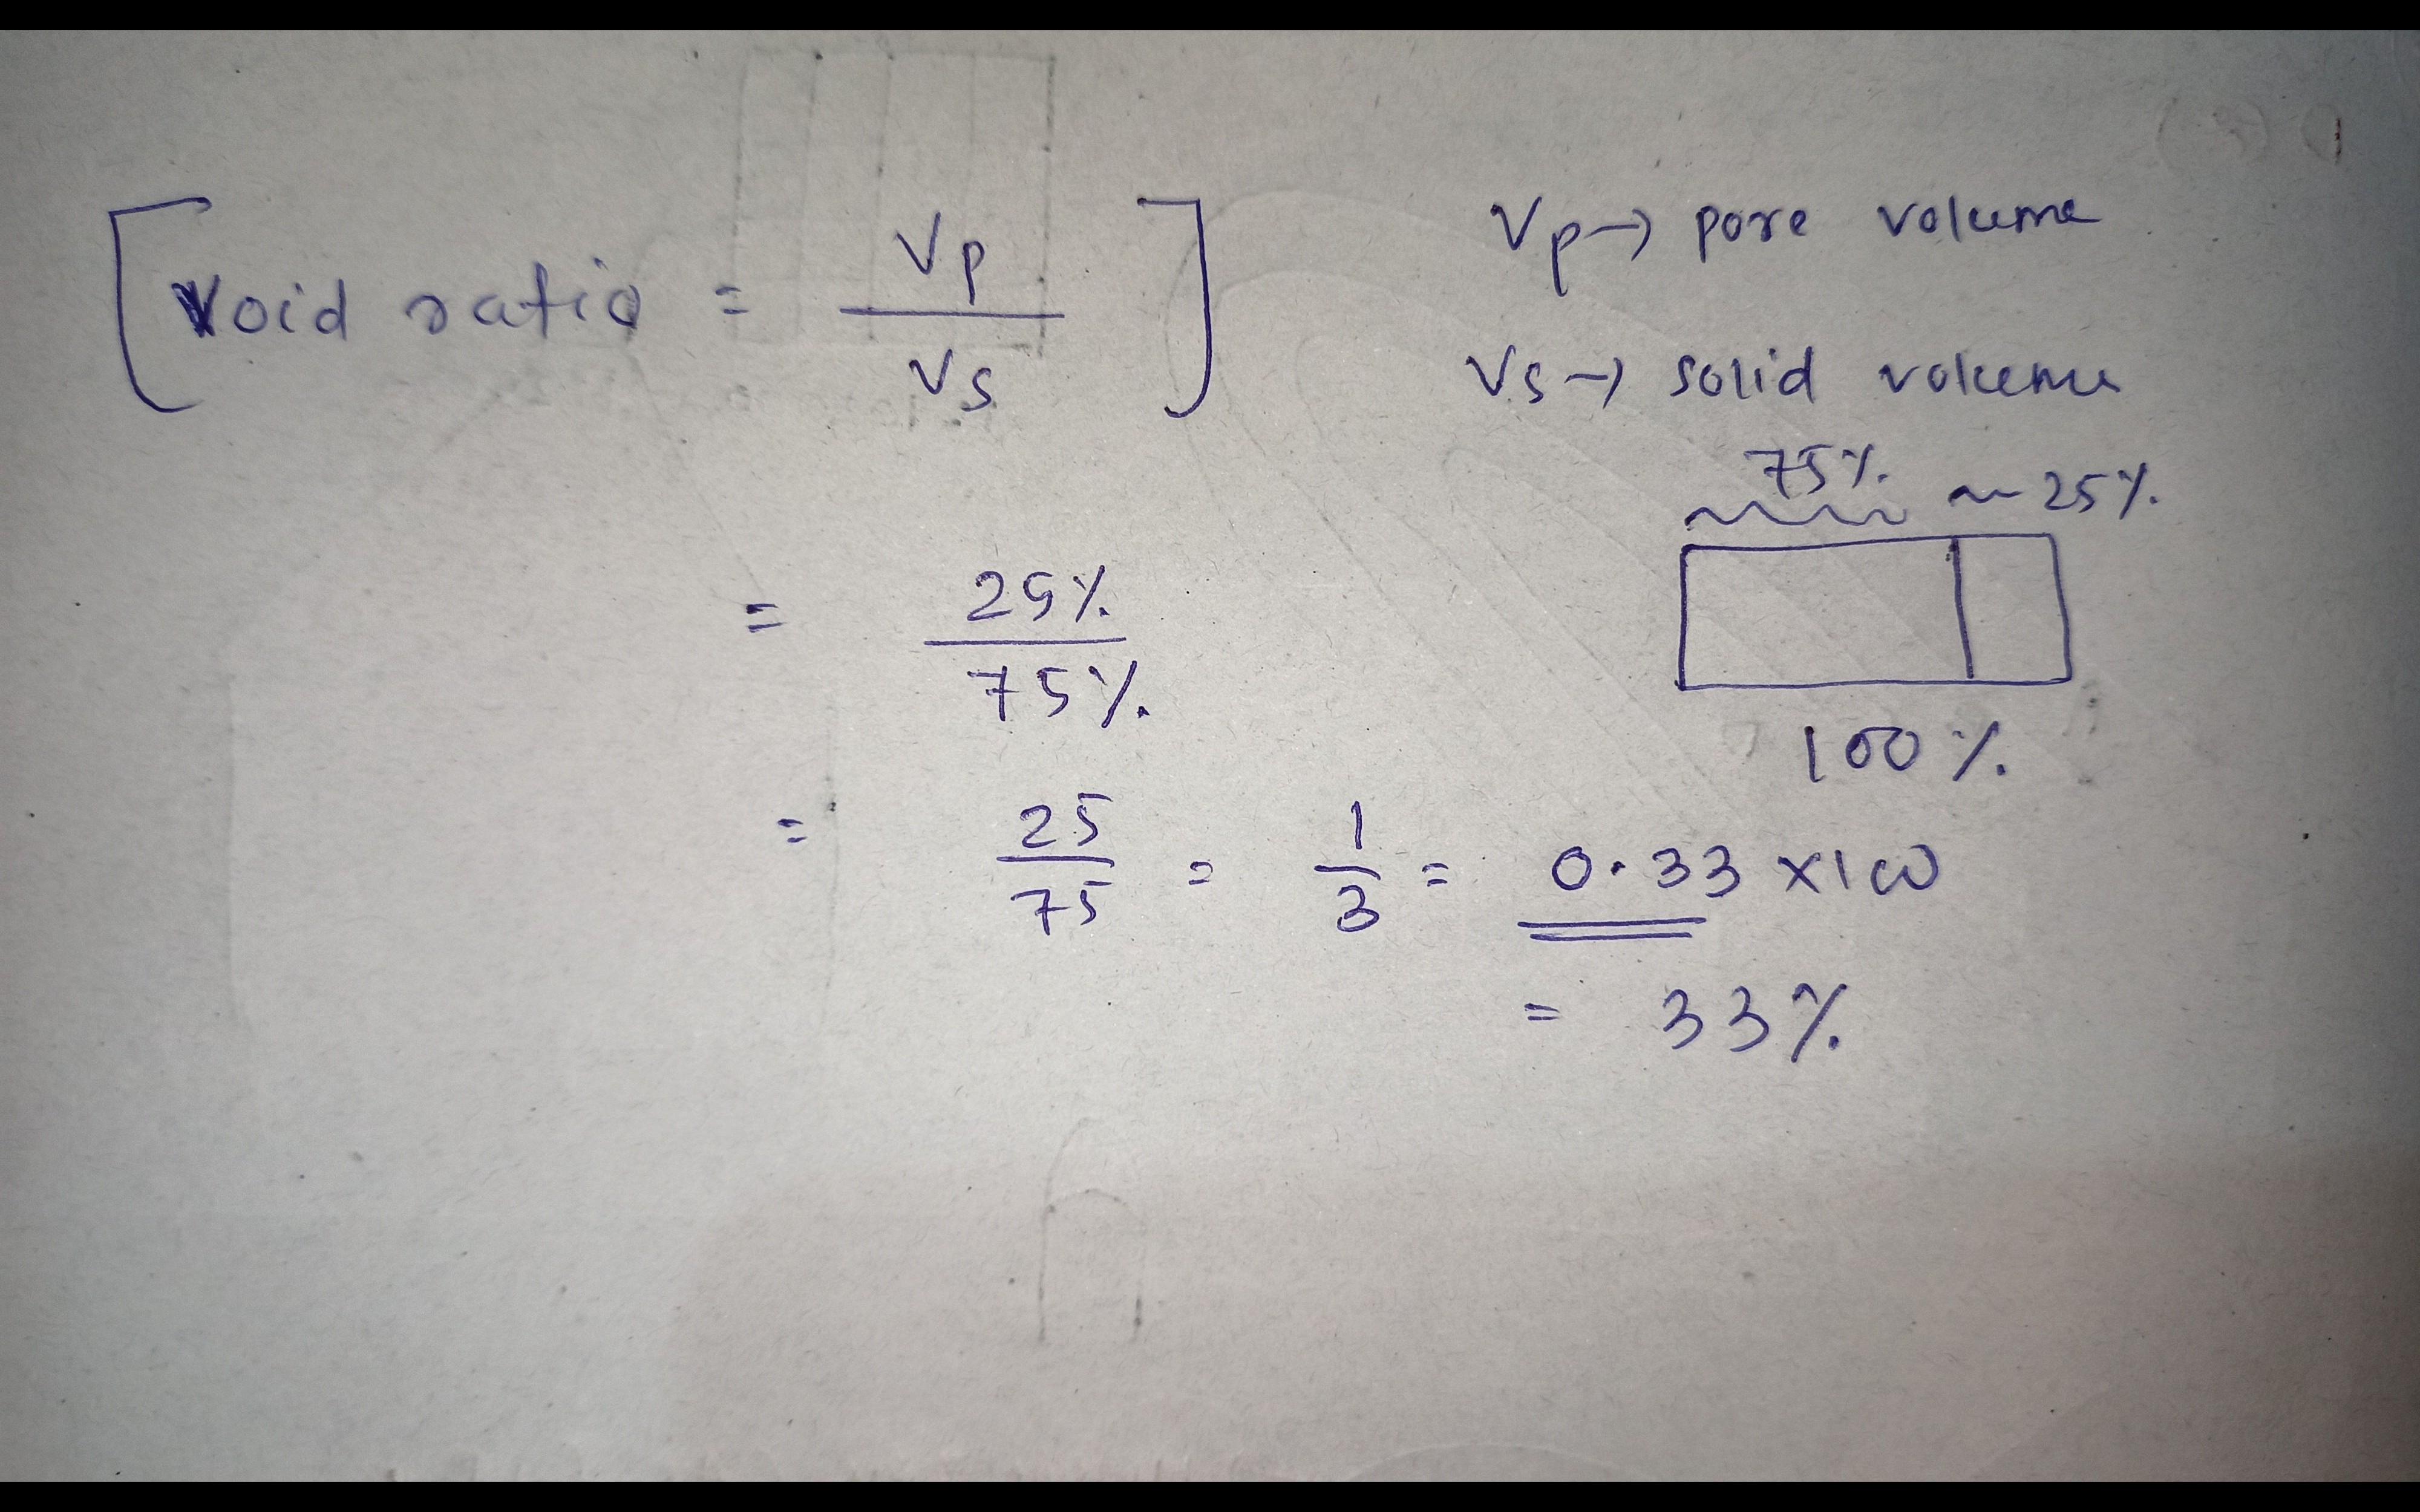 Void ratio = Vp / Vs
Vp → pore volume
Vs → solid volume
75% 25%
100%
= 25% / 75%
= 25 / 75 = 1 / 3 = 0.33 × 100
= 33%